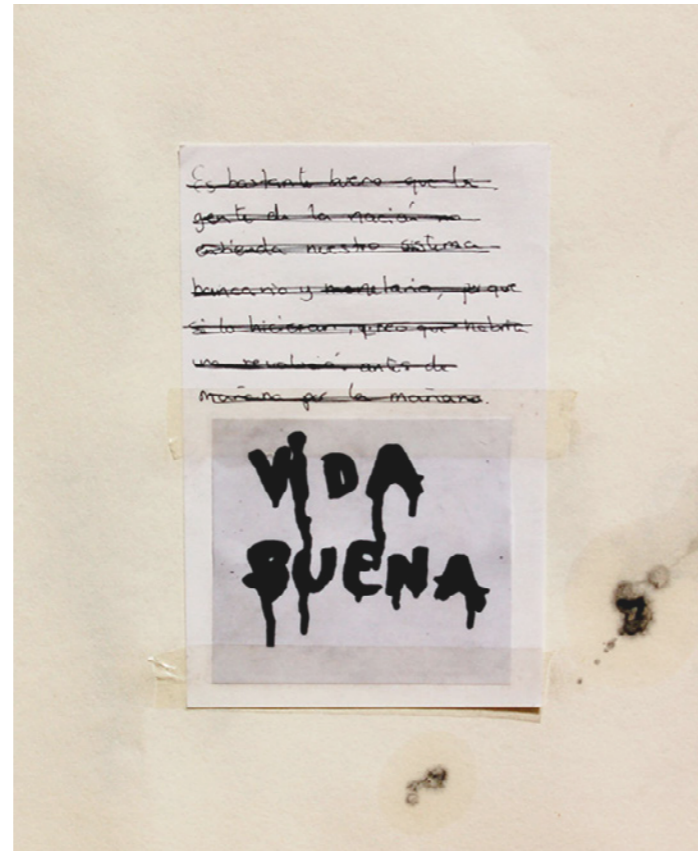 Es bastante bueno que la
gente de la nación no
entienda nuestro sistema
bancario y monetario, porque
si lo hicieran, creo que habría
una revolución antes de
mañana por la mañana.
VIDA
BUENA